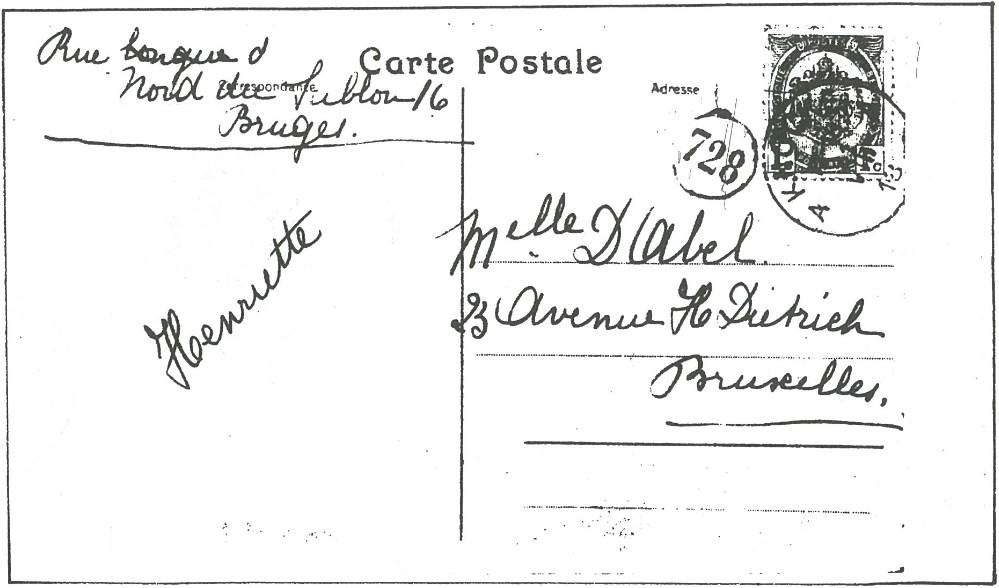 Rue longue d
Nord du Sablon 16
Bruges.
Carte Postale
Correspondance
Adresse
728
Henriette
Melle D'Abel.
23 Avenue H Dietrich
Bruxelles.